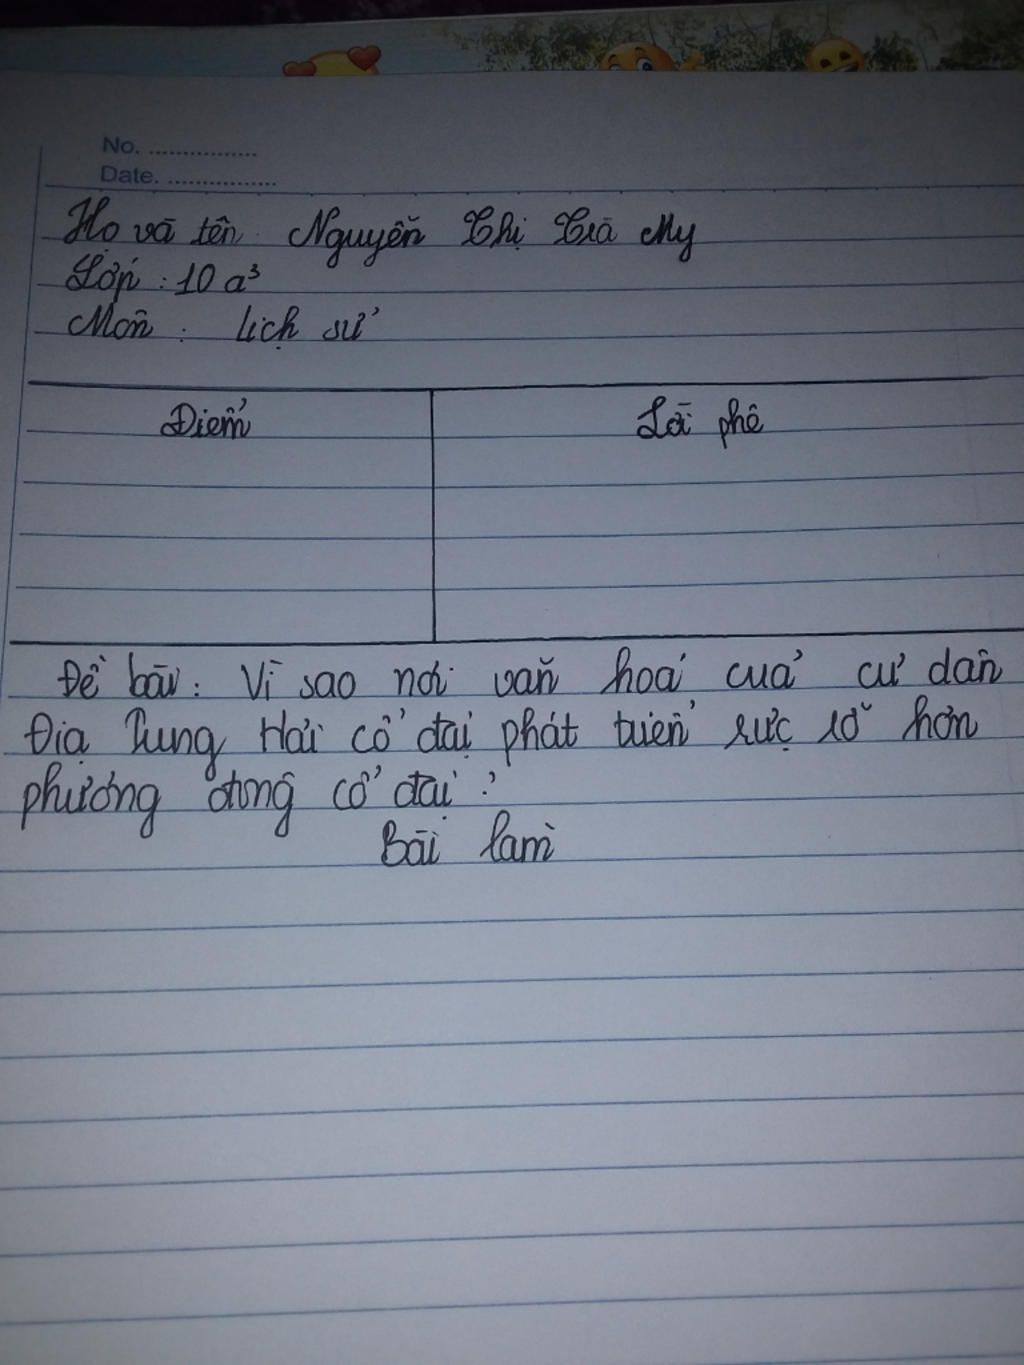 No. ................
Date. ................
Họ và tên: Nguyễn Thị Trà My
Lớp : 10 a3
Môn : Lịch sử
Điểm
Lời phê
Đề bài: Vì sao nói văn hoá của cư dân
Địa Trung Hải cổ đại phát triển rực rỡ hơn
phương đông cổ đại ?
Bài làm